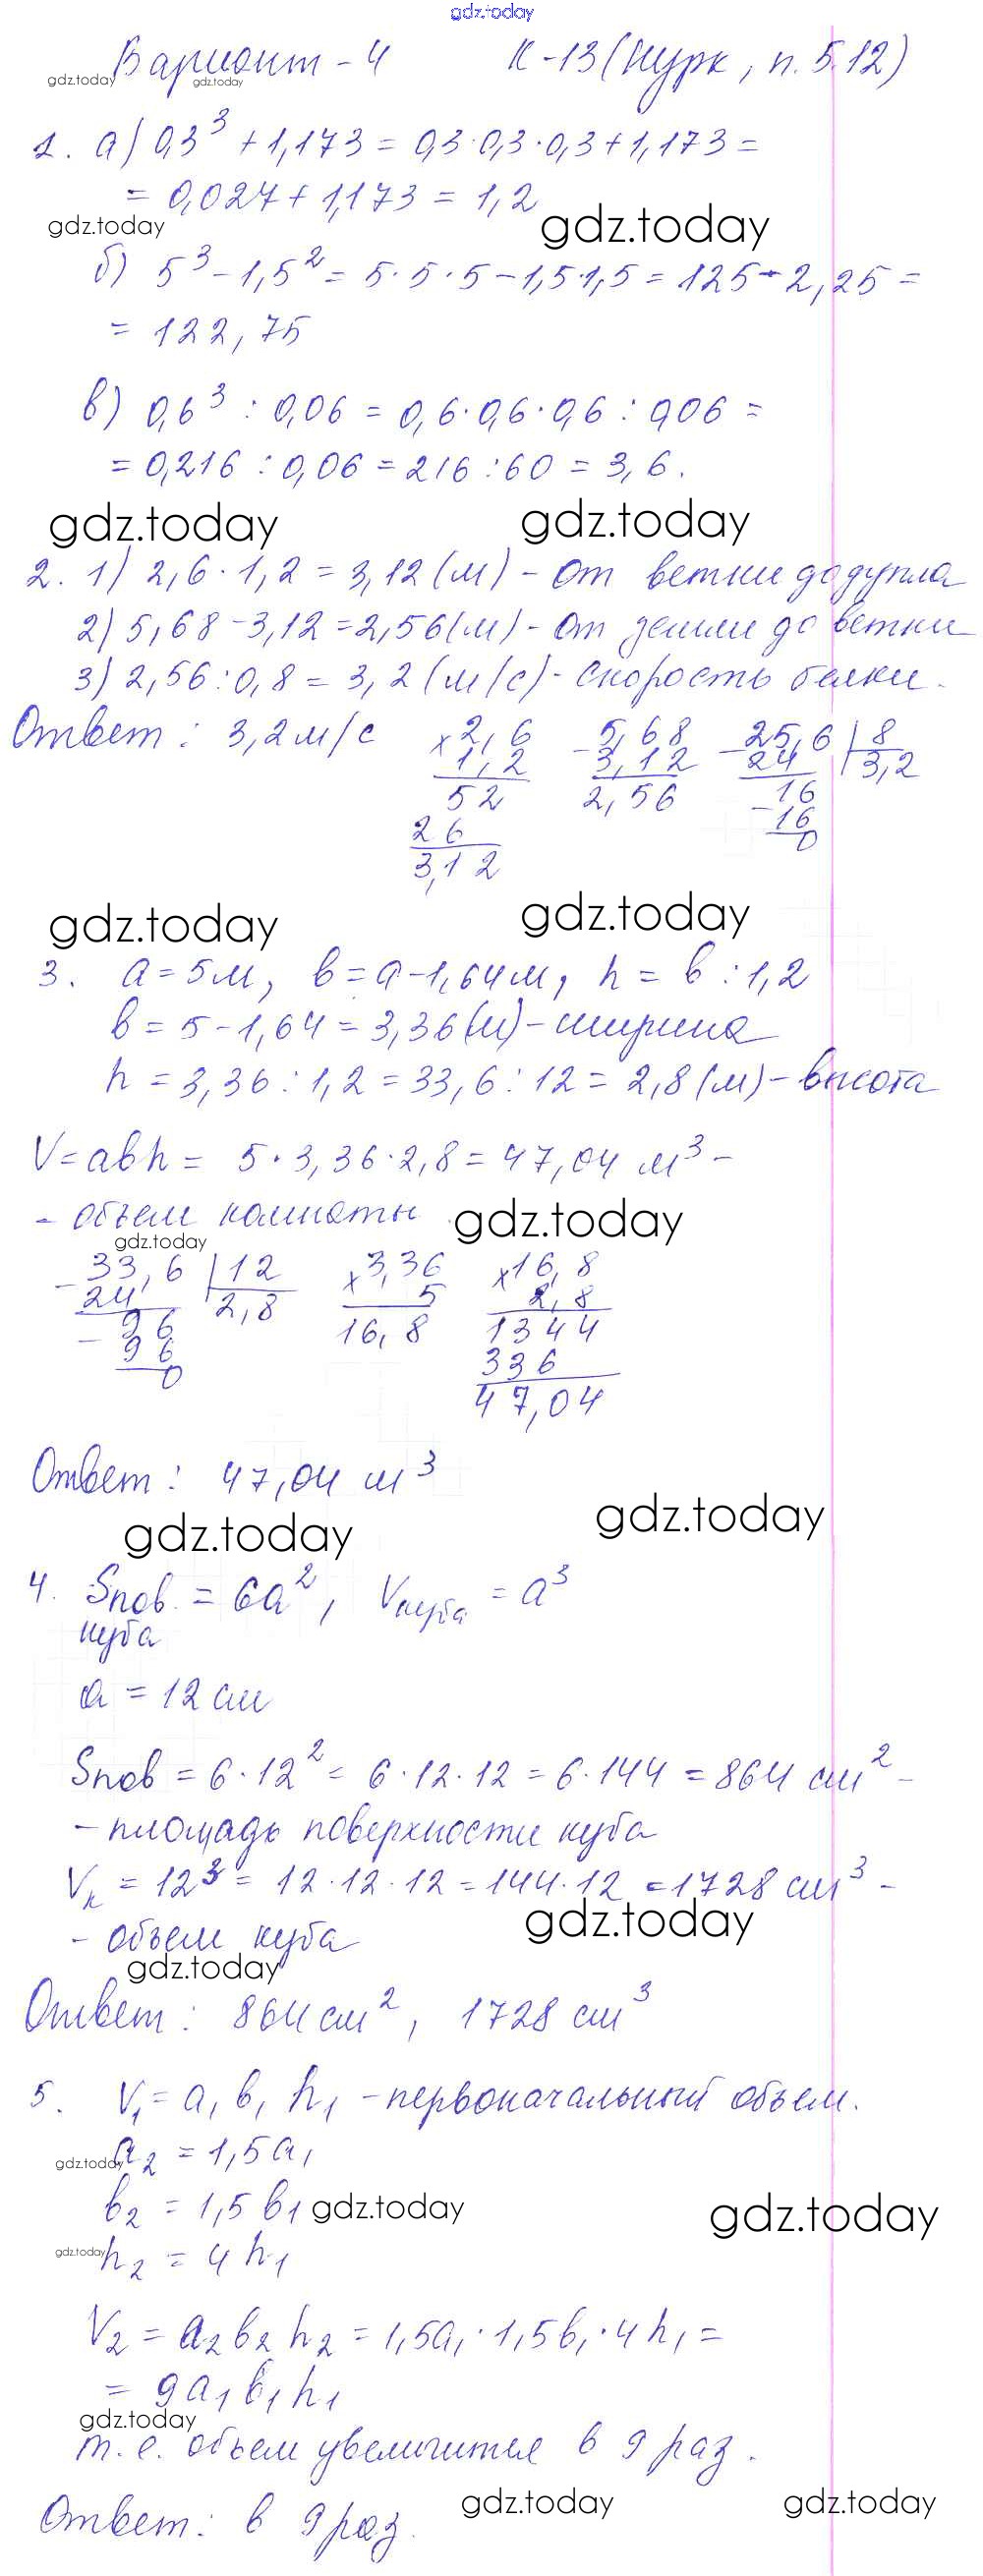 gdz.today
Вариант - 4 К-13 (Нурк, п. 5.12)
gdz.today gdz.today
1. а) 0,3³ + 1,173 = 0,3·0,3·0,3+1,173 =
= 0,027+1,173 = 1,2
gdz.today gdz.today
б) 5³ - 1,5² = 5·5·5-1,5·1,5 = 125-2,25 =
= 122,75
в) 0,6³ : 0,06 = 0,6·0,6·0,6 : 0,06 =
= 0,216 : 0,06 = 216 : 60 = 3,6.
gdz.today gdz.today
2. 1) 2,6 · 1,2 = 3,12 (м) - от ветки до дупла
2) 5,68 - 3,12 = 2,56 (м) - от земли до ветки
3) 2,56 : 0,8 = 3,2 (м/с) - скорость белки.
Ответ : 3,2 м/с × 2,6 - 5,68 - 25,6 | 8
1,2 3,12 24 3,2
52 2,56 16
- 16
26 0
3,12
gdz.today gdz.today
3. а = 5 м, в = а - 1,64 м, h = в : 1,2
в = 5 - 1,64 = 3,36 (м) - ширина
h = 3,36 : 1,2 = 33,6 : 12 = 2,8 (м) - высота
V = авh = 5 · 3,36 · 2,8 = 47,04 м³ -
- объем комнаты gdz.today
gdz.today
- 33,6 | 12 × 3,36 × 16,8
24 2,8 5 2,8
- 96 16,8 1344
96 336
0 47,04
Ответ : 47,04 м³
gdz.today gdz.today
4. Sпов. = 6а², Vкуба = а³
куба
а = 12 см
Sпов = 6 · 12² = 6 · 12 · 12 = 6 · 144 = 864 см² -
- площадь поверхности куба
Vк = 12³ = 12 · 12 · 12 = 144 · 12 = 1728 см³ -
gdz.today
- объем куба
gdz.today
Ответ : 864 см², 1728 см³
5. V₁ = а₁ в₁ h₁ - первоначальный объем.
gdz.today а₂ = 1,5а₁
в₂ = 1,5 в₁ gdz.today gdz.today
gdz.today h₂ = 4 h₁
V₂ = а₂ в₂ h₂ = 1,5а₁ · 1,5в₁ · 4 h₁ =
= 9а₁ в₁ h₁
gdz.today
т. е. объем увеличится в 9 раз.
Ответ : в 9 раз. gdz.today gdz.today